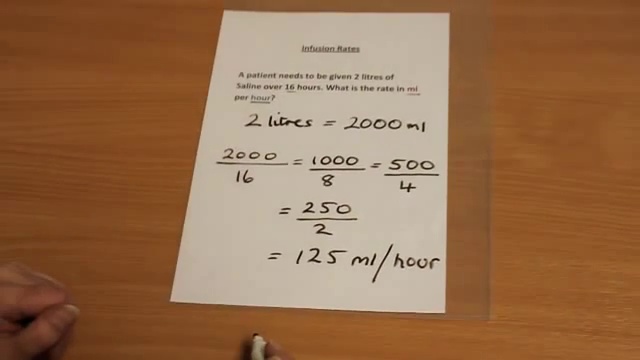 Infusion Rates
A patient needs to be given 2 litres of
Saline over 16 hours. What is the rate in ml
per hour?
2 litres = 2000 ml
2000/16 = 1000/8 = 500/4
= 250/2
= 125 ml/hour